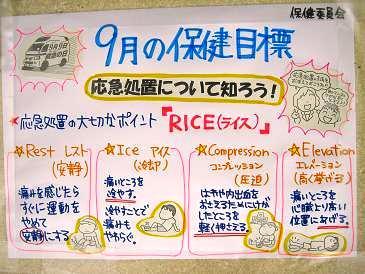 保健委員会
9月9日
救急の日
9月の保健目標
応急処置について知ろう!
☆応急処置の大切なポイント『RICE(ライス)』
☆Rest レスト
(安静)
痛みを感じたら
すぐに運動を
やめて
安静にする
☆Ice アイス
(冷却)
痛いところを
冷やす。
冷やすことで
痛みも
やわらぐ。
☆Compression
コンプレッション
(圧迫)
はれや内出血を
おさえるためにけが
したところを
軽く押さえる。
☆Elevation
エレベーション
(高く挙げる)
痛いところを
心臓より高い
位置にあげる。